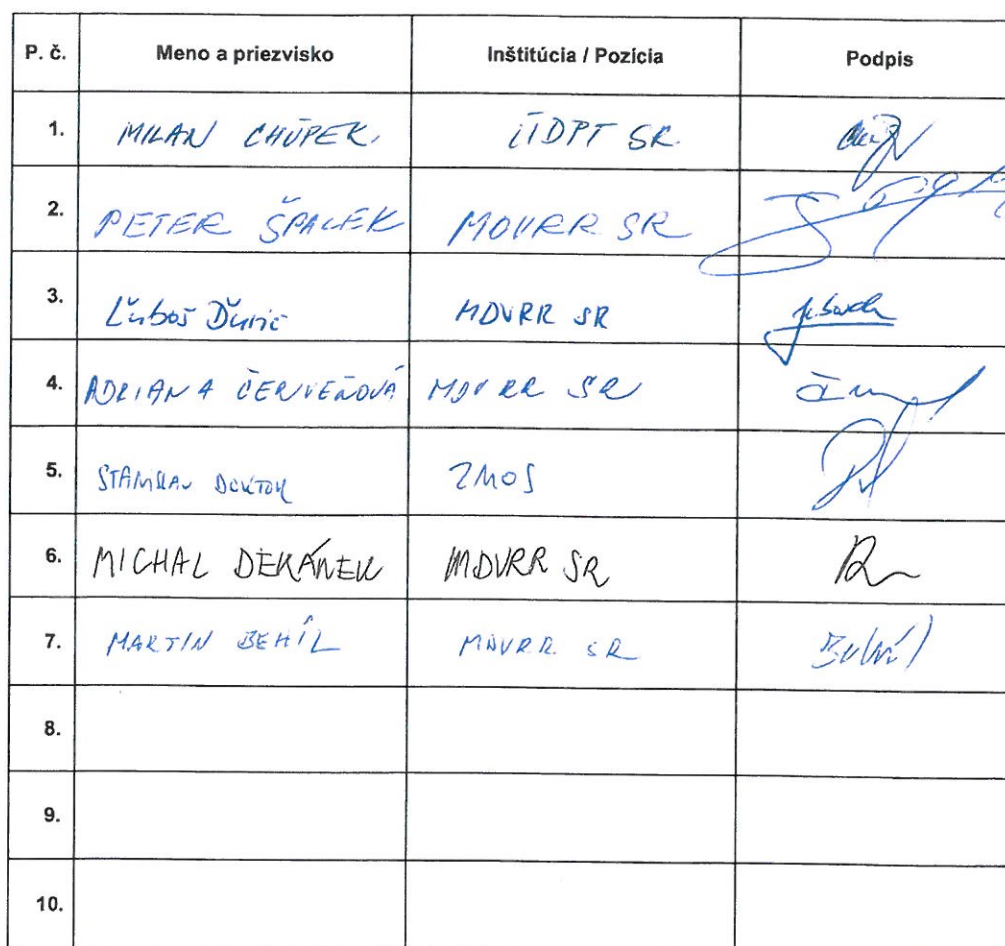 P. č. Meno a priezvisko Inštitúcia / Pozícia Podpis
1. MILAN CHÚPEK SR
2. PETER ŠPALEK MDVRR SR
3. Ľuboš Ďurič MDVRR SR
4. ADRIANA ČERVEŇOVÁ MDVRR SR
5. STANISLAV DOKTOR ZMOS
6. MICHAL DEKÁNEK MDVRR SR
7. MARTIN BEHÍL MDVRR SR
8.
9.
10.